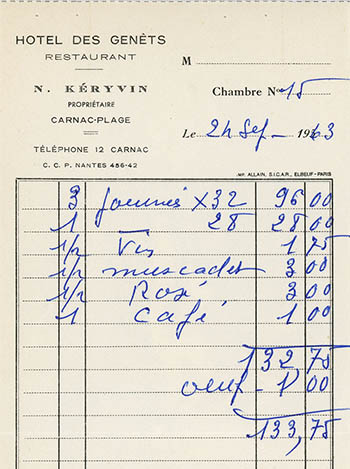 HOTEL DES GENÊTS
RESTAURANT
N. KÉRYVIN
PROPRIÉTAIRE
CARNAC-PLAGE
TÉLÉPHONE 12 CARNAC
C. C. P. NANTES 486-42
M
Chambre No 15
Le 24 Sep - 1963
IMP. ALLAIN, S.I.C.A.R., ELBEUF - PARIS
3 journées X 32 96 00
1 28 28 00
1/2 Vin 1 75
1/2 muscadet 3 00
1/2 Rosé 3 00
1 Café 1 00
132,75
oeuf - 1 00
133,75